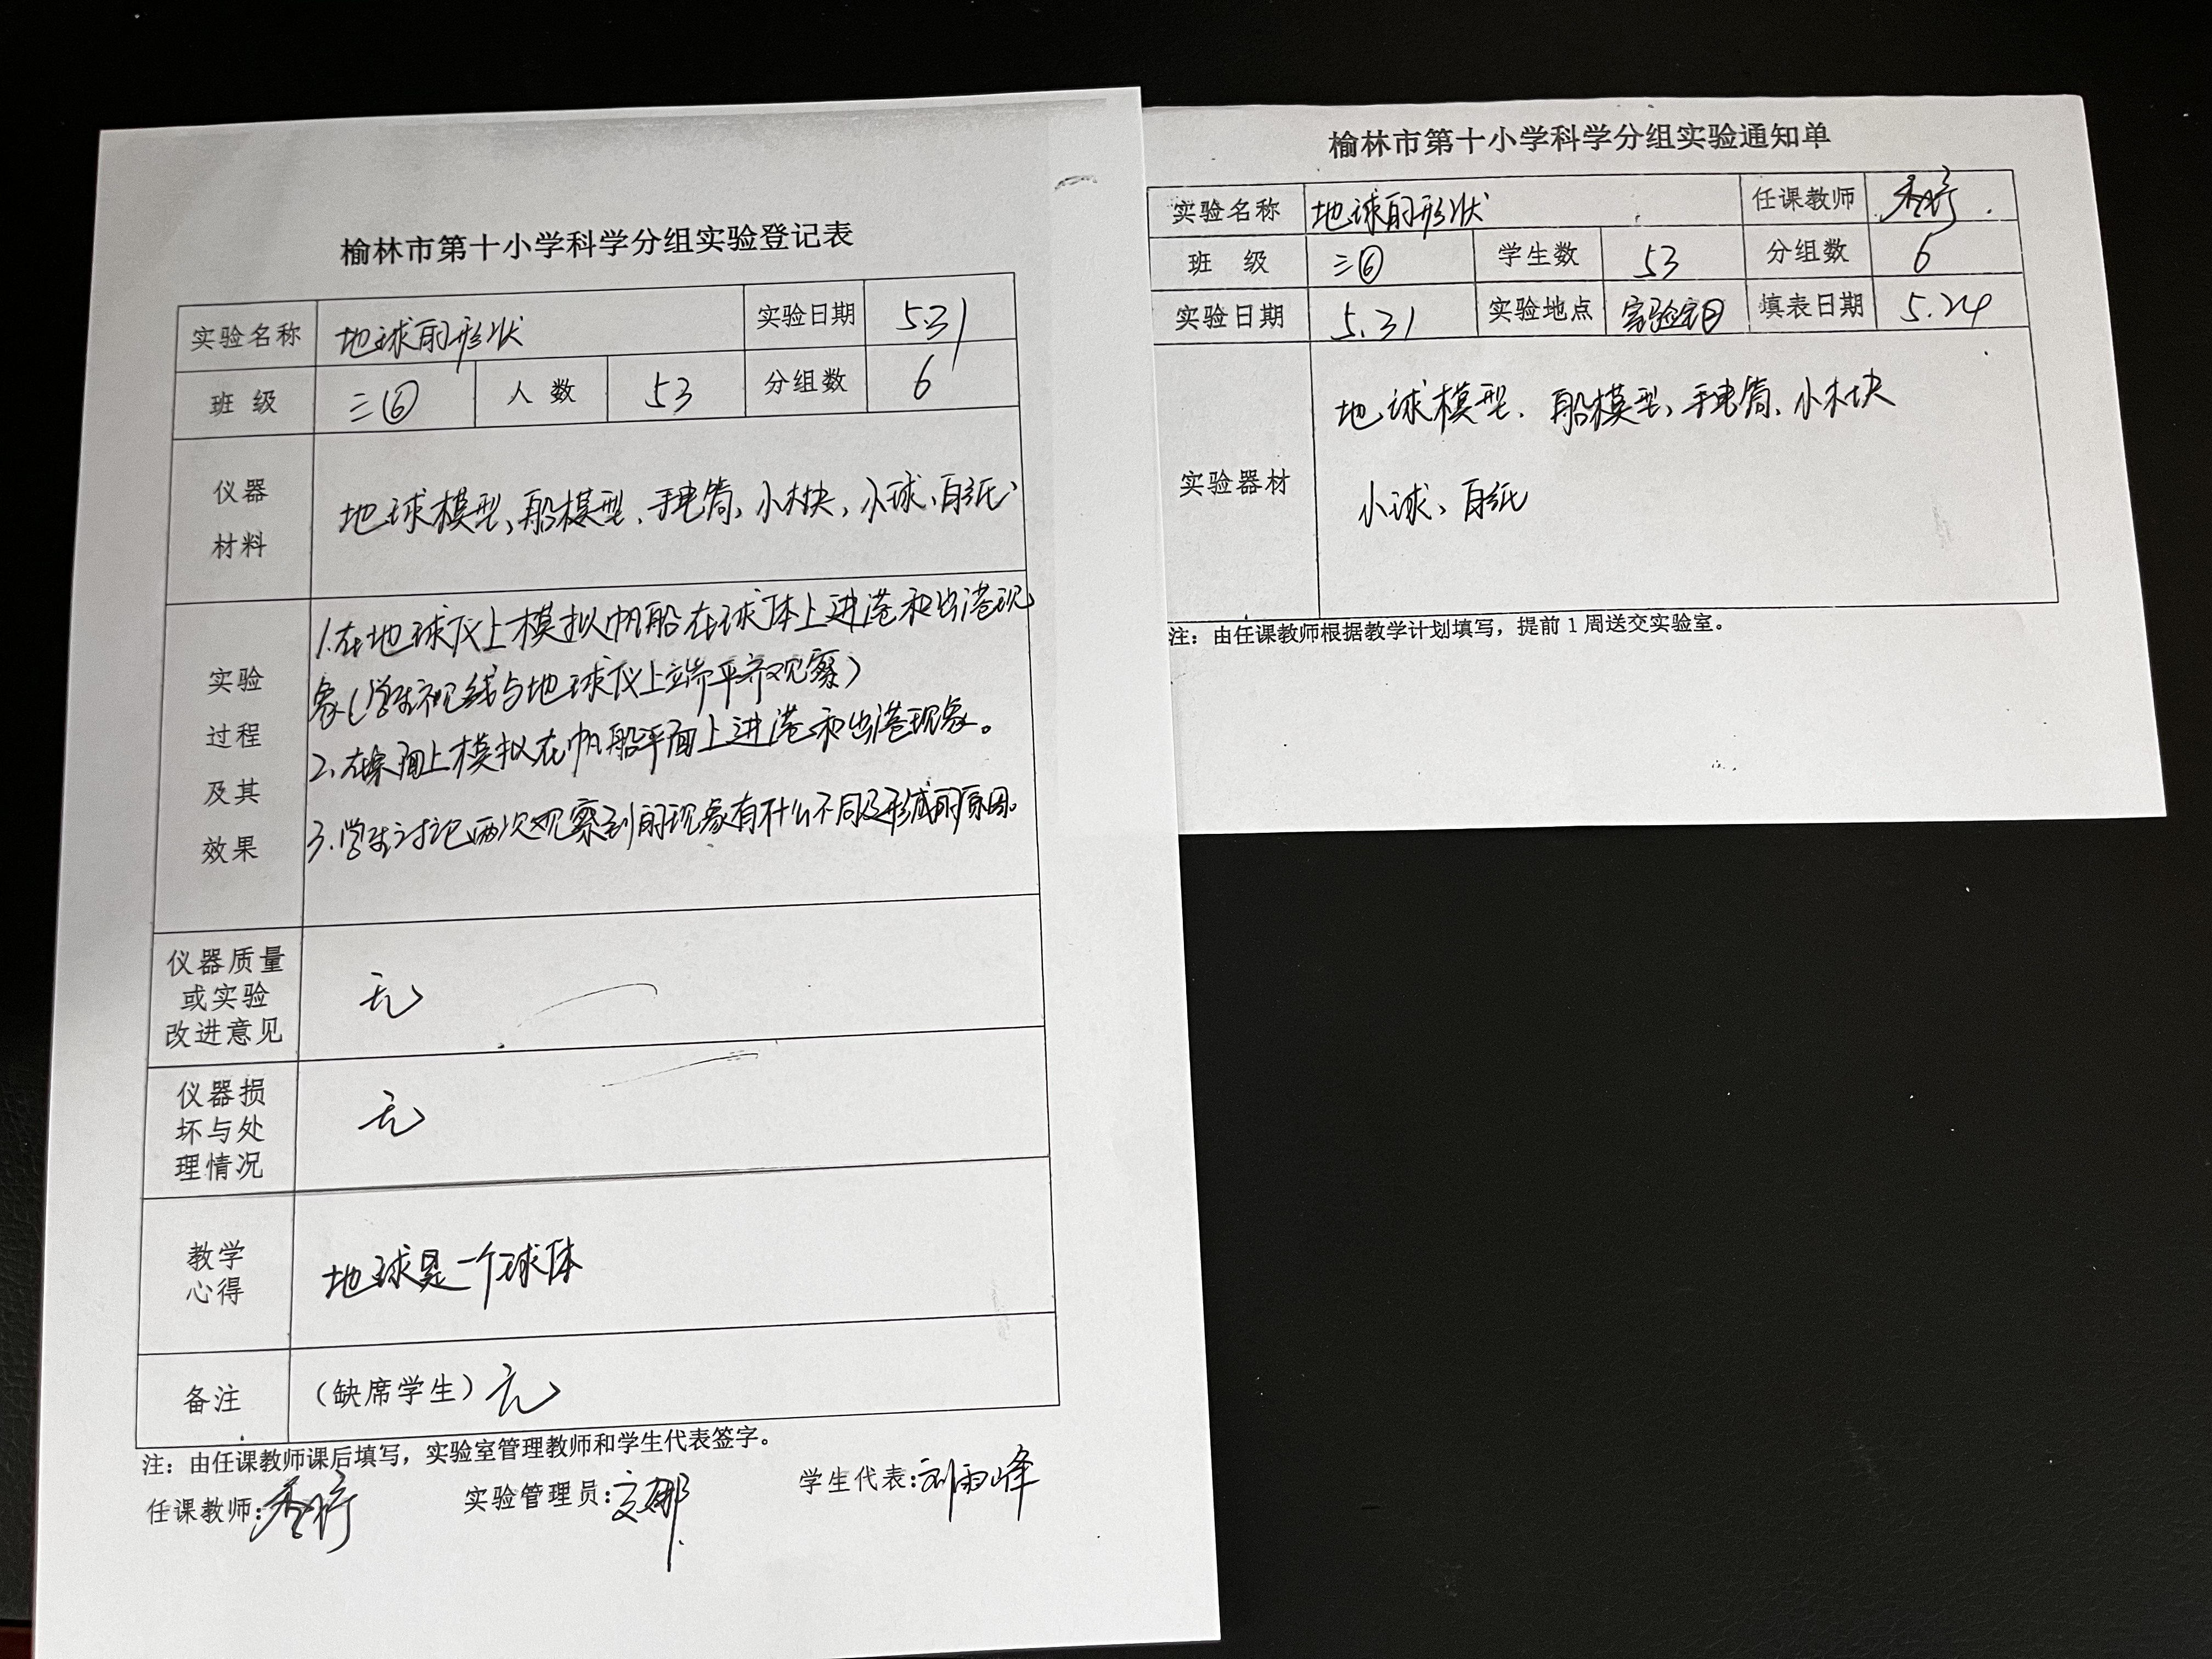 榆林市第十小学科学分组实验登记表
实验名称 地球的形状 实验日期 5.31
班 级 三⑥ 人 数 53 分组数 6
仪器
材料
地球模型、船模型、手电筒、小木块、小球、白纸
实验
过程
及其
效果
1.在地球仪上模拟帆船在球体上进港和出港现
象(学生视线与地球仪上端平齐观察)
2.在桌面上模拟在帆船平面上进港和出港现象。
3.学生讨论两次观察到的现象有什么不同及形成的原因。
仪器质量
或实验
改进意见
无
仪器损
坏与处
理情况
无
教学
心得
地球是一个球体
备注 (缺席学生) 无
注:由任课教师课后填写,实验室管理教师和学生代表签字。
任课教师: 实验管理员: 学生代表:刘雨峰
榆林市第十小学科学分组实验通知单
实验名称 地球的形状 任课教师
班 级 三⑥ 学生数 53 分组数 6
实验日期 5.31 实验地点 实验室 填表日期 5.24
实验器材
地球模型、船模型、手电筒、小木块
小球、白纸
注:由任课教师根据教学计划填写,提前1周送交实验室。